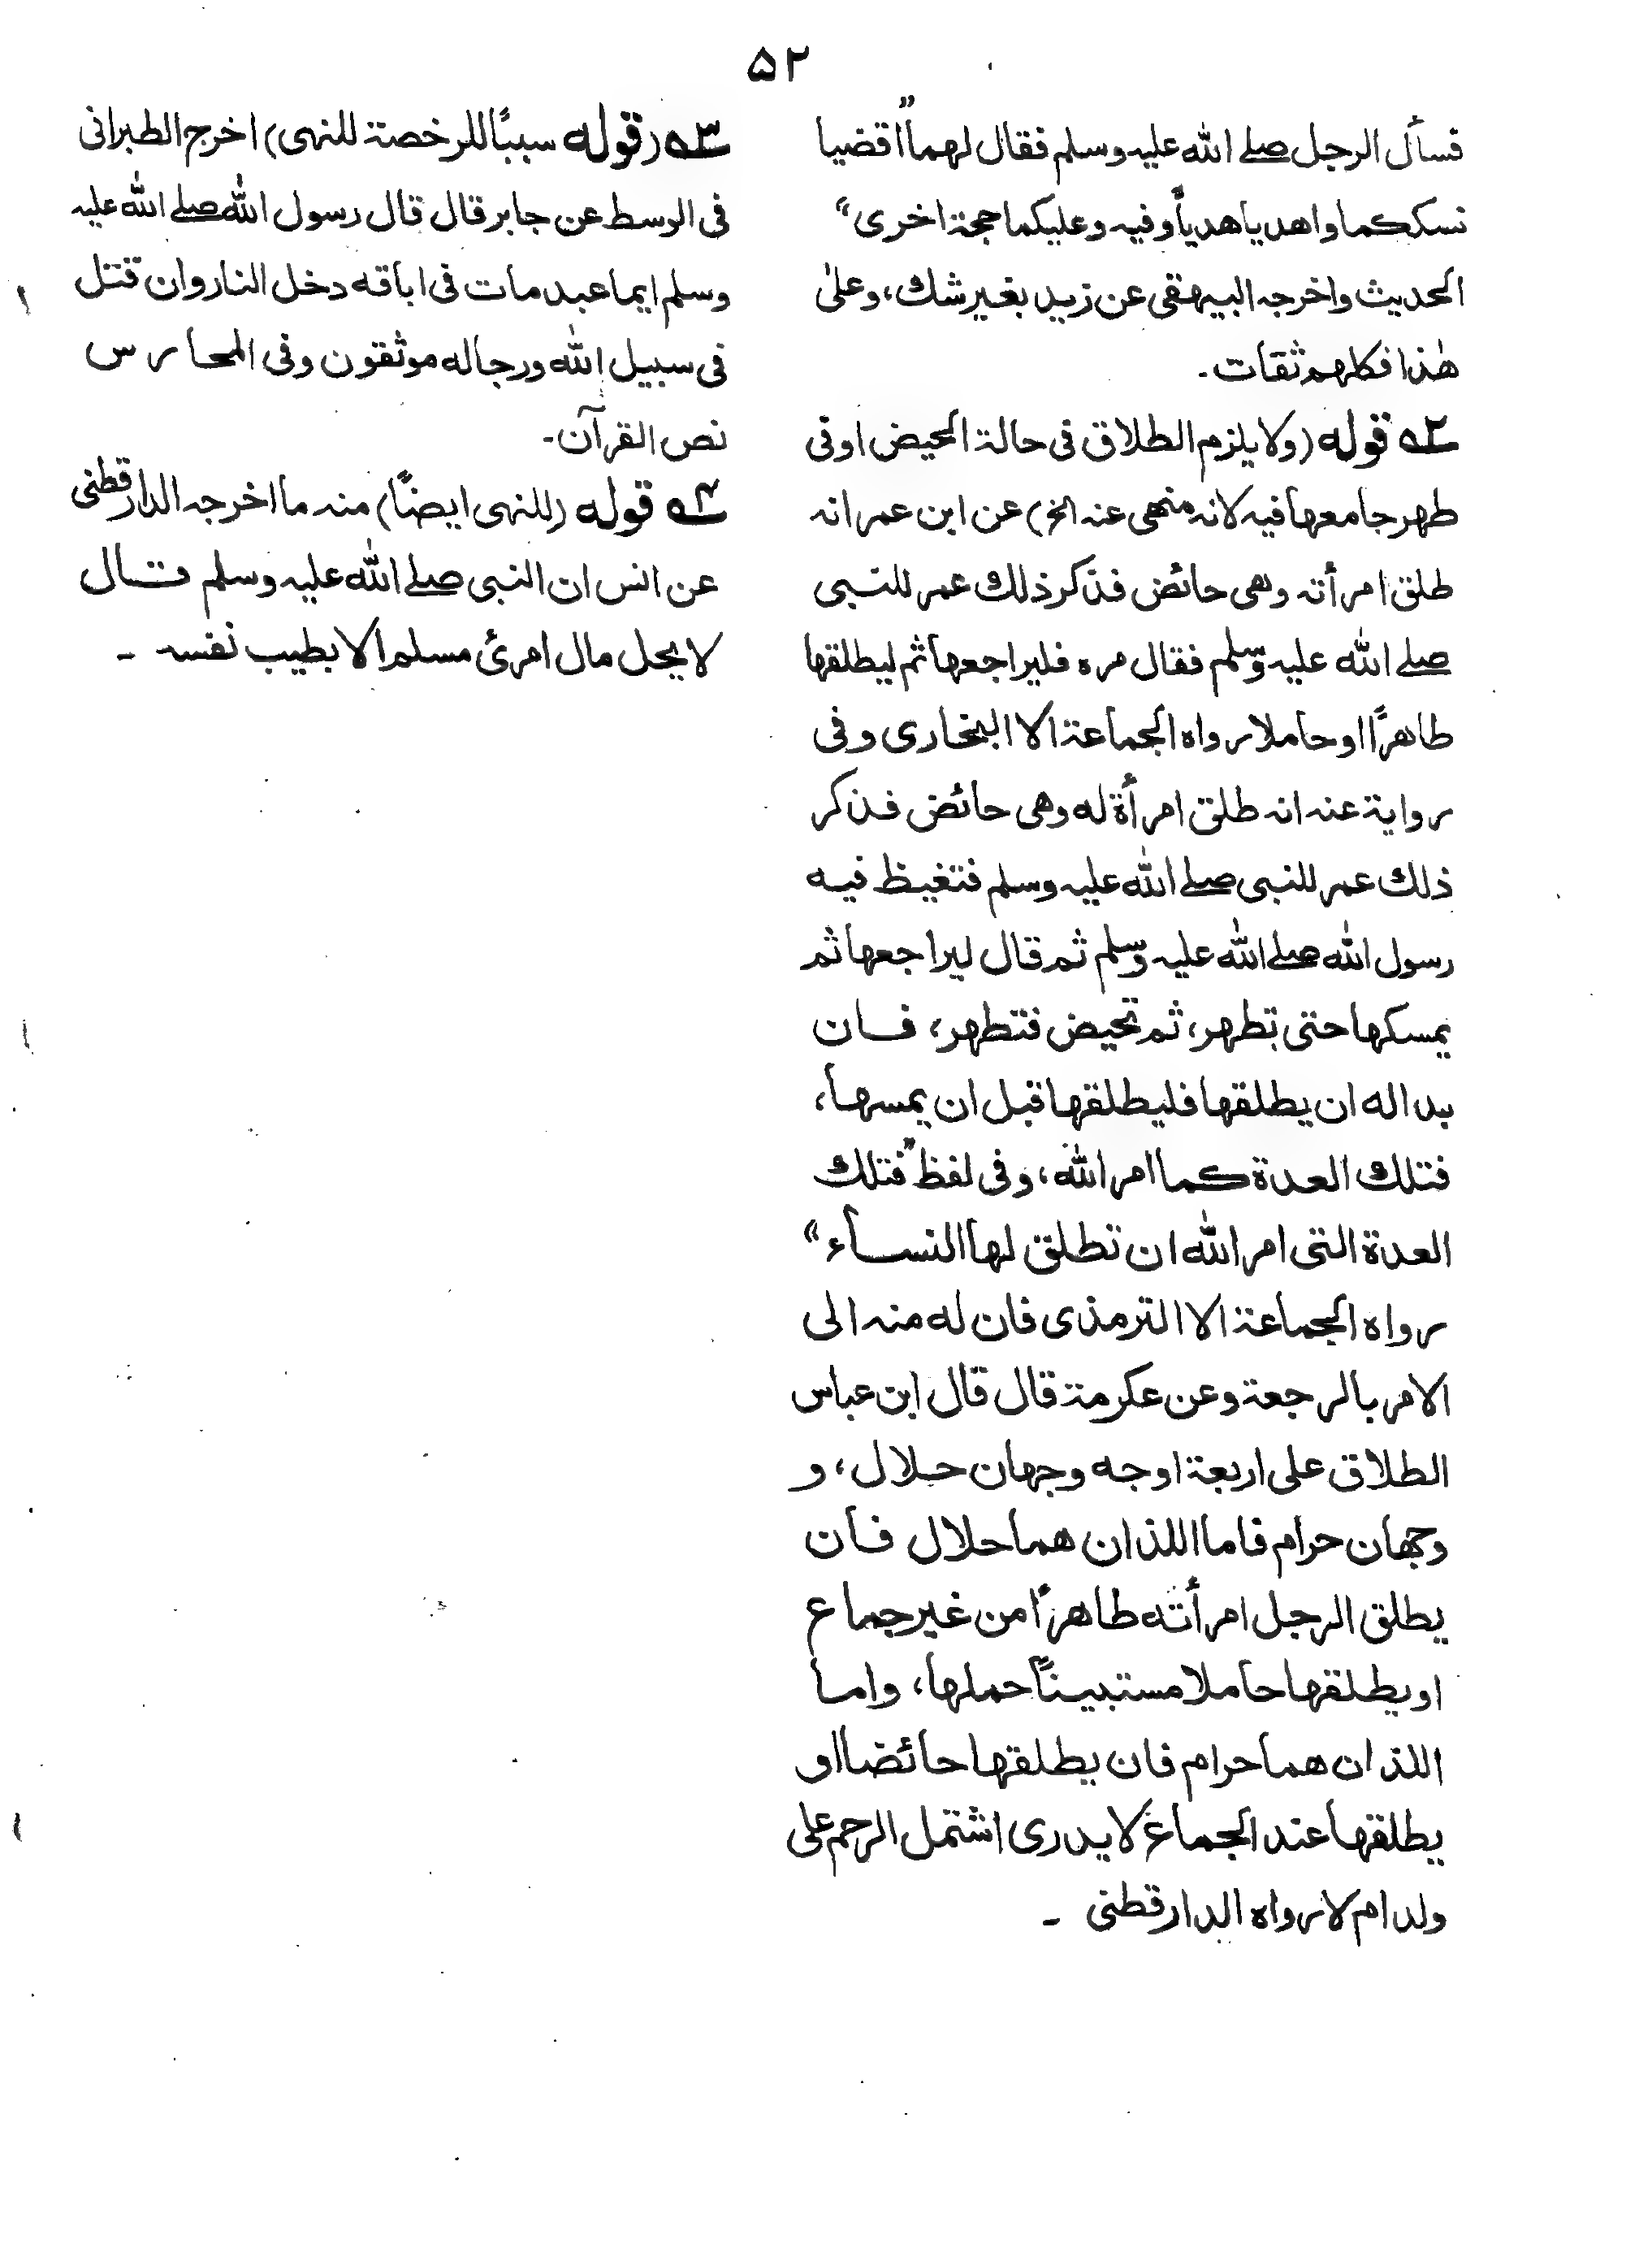 ۵۲
فسأل الرجل صلے اللہ علیہ وسلم فقال لھما "اقضیا
نسککما واھدیا ھدیاً وفیہ وعلیکما حجۃ اخری"
الحدیث واخرجہ البیھقی عن زید بغیر شك، وعلیٰ
ھٰذا فکلھم ثقات۔
۲ قولہ (ولا یلزم الطلاق فی حالۃ الحیض اوفی
طھر جامعھا فیہ لانہ منھی عنہ الخ) عن ابن عمر انہ
طلق امرأتہ وھی حائض فذکر ذلك عمر للنبی
صلے اللہ علیہ وسلم فقال مرہ فلیراجعھا ثم لیطلقھا
طاھرًا اوحاملا رواہ الجماعۃ الا البخاری وفی
روایۃ عنہ انہ طلق امرأۃ لہ وھی حائض فذکر
ذلك عمر للنبی صلے اللہ علیہ وسلم فتغیظ فیہ
رسول اللہ صلے اللہ علیہ وسلم ثم قال لیراجعھا ثم
یمسکھا حتی تطھر، ثم تحیض فتطھر، فان
بدا لہ ان یطلقھا فلیطلقھا قبل ان یمسھا،
فتلك العدۃ کما امر اللہ، وفی لفظ "فتلك
العدۃ التی امر اللہ ان تطلق لھا النساء"
رواہ الجماعۃ الا الترمذی فان لہ منہ الی
الامر بالرجعۃ وعن عکرمۃ قال قال ابن عباس
الطلاق علی اربعۃ اوجہ وجھان حلال، و
وجھان حرام فاما اللذان ھما حلال فان
یطلق الرجل امرأتہ طاھرًا من غیر جماع
اویطلقھا حاملا مستبیناً حملھا، واما
اللذان ھما حرام فان یطلقھا حائضا او
یطلقھا عند الجماع لا یدری اشتمل الرحم علی
ولد ام لا رواہ الدارقطنی ۔
۳ (قولہ سببًا للرخصۃ للنھی) اخرج الطبرانی
فی الوسط عن جابر قال قال رسول اللہ صلے اللہ علیہ
وسلم ایما عبد مات فی اباقہ دخل النار وان قتل
فی سبیل اللہ ورجالہ موثقون وفی المحارس
نص القرآن۔
۴ قولہ (للنھی ایضًا) منہ ما اخرجہ الدارقطنی
عن انس ان النبی صلے اللہ علیہ وسلم قال
لا یحل مال امرئ مسلم الا بطیب نفسہ ۔